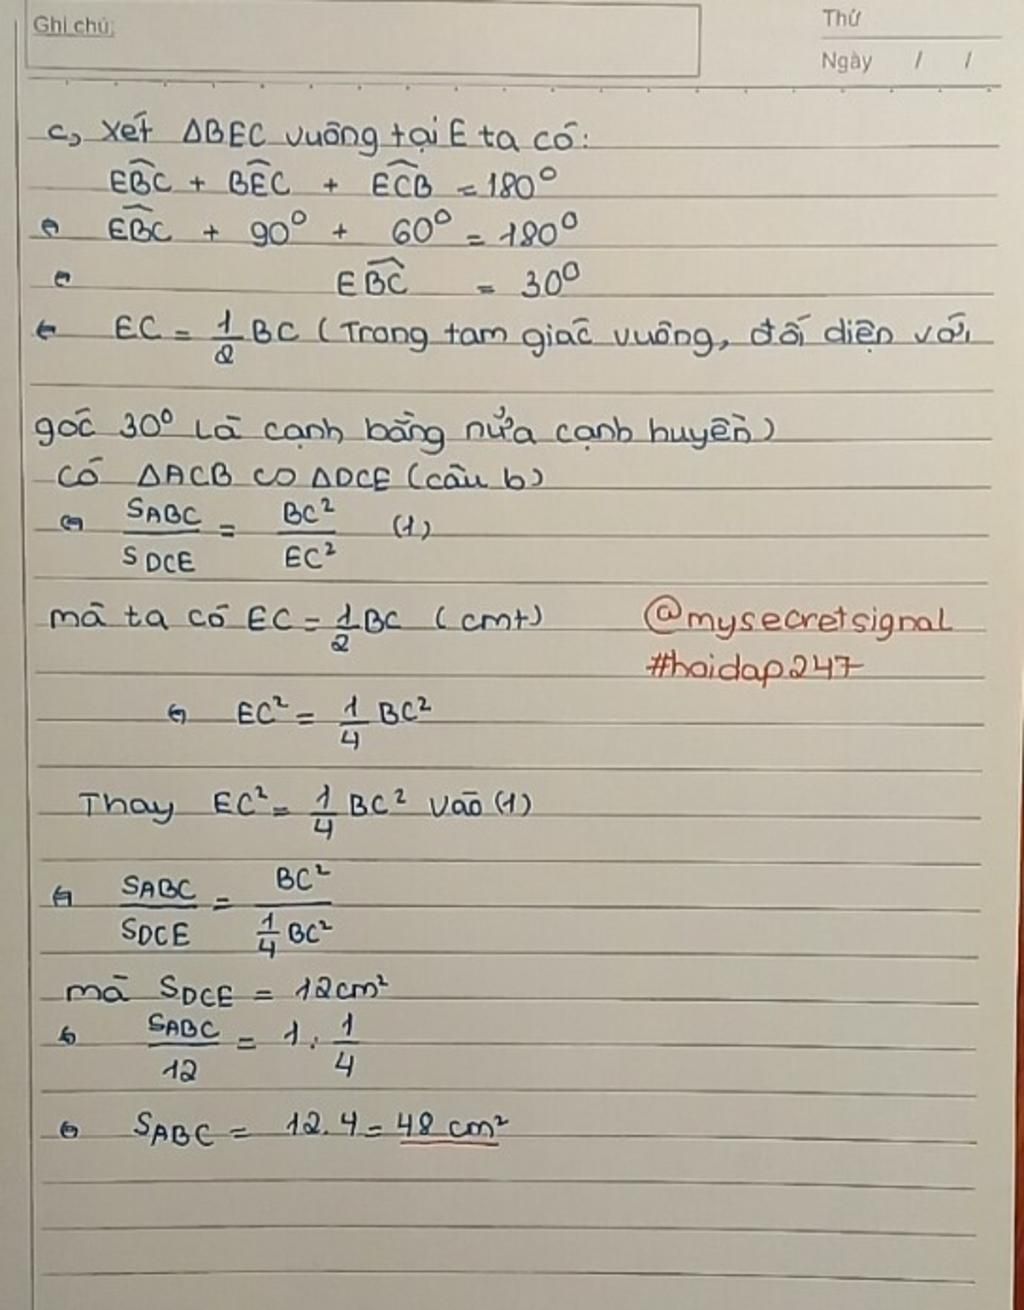 Ghi chú:
Thứ
Ngày / /
c, Xét ΔBEC vuông tại E ta có:
EBC + BEC + ECB = 180⁰
⇔ EBC + 90⁰ + 60⁰ = 180⁰
⇔ EBC = 30⁰
⇔ EC = 1/2 BC (Trong tam giác vuông, đối diện với
góc 30⁰ là cạnh bằng nửa cạnh huyền)
Có ΔACB ∽ ΔDCE (câu b)
⇔ SABC/SDCE = BC²/EC² (1)
mà ta có EC = 1/2 BC (cmt)
⇔ EC² = 1/4 BC²
@mysecretsignal
#hoidap247
Thay EC² = 1/4 BC² vào (1)
⇔ SABC/SDCE = BC²/(1/4 BC²)
mà SDCE = 12cm²
⇔ SABC/12 = 1 : 1/4
⇔ SABC = 12.4 = 48 cm²